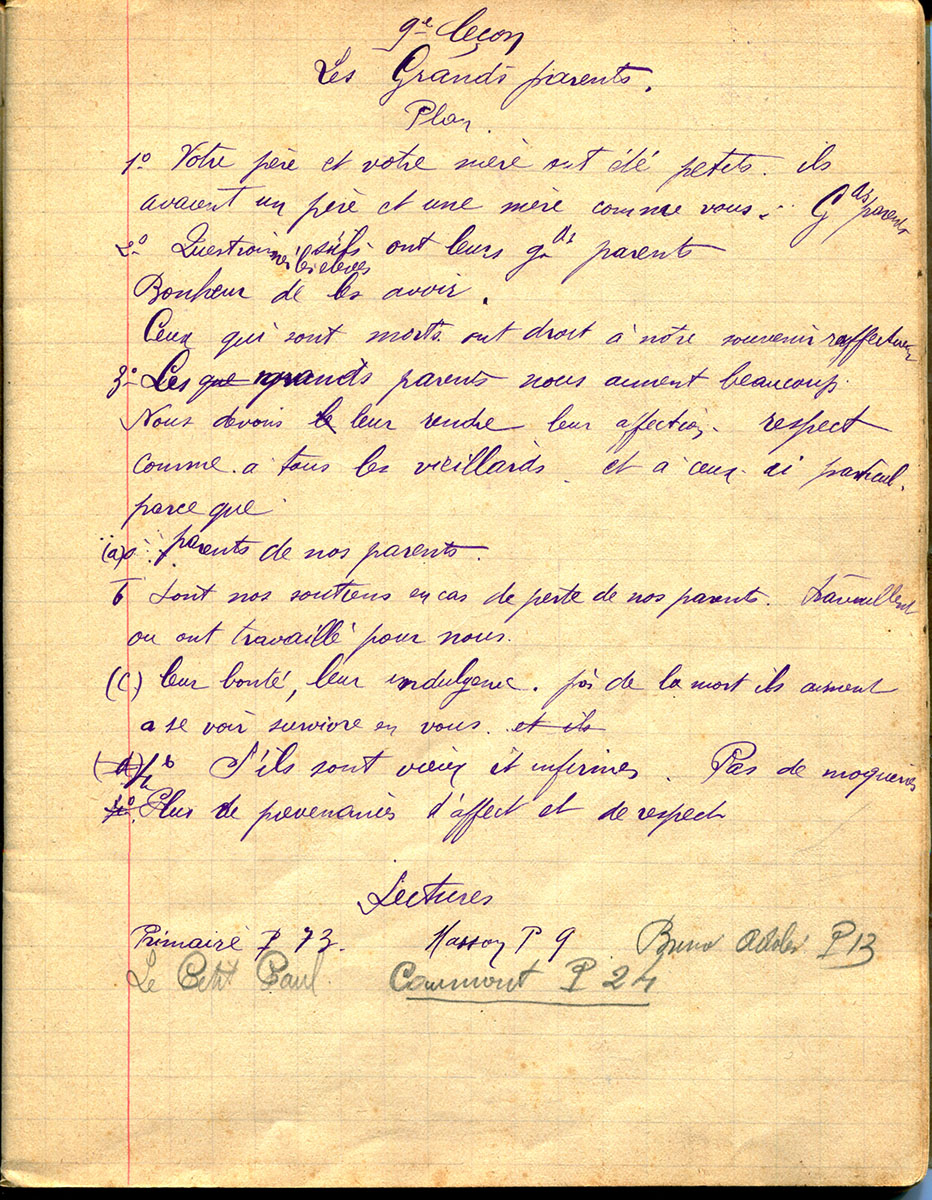 9e leçon
Les Grands parents.
Plan
1º Votre père et votre mère ont été petits. ils
avaient un père et une mère comme vous : Gds parents
2º Questionner les élèves s'ils ont leurs gds parents
Bonheur de les avoir.
Ceux qui sont morts ont droit à notre souvenir affectueux
3º Les que grands parents nous aiment beaucoup.
Nous devons le leur rendre leur affection. respect
comme à tous les vieillards et à ceux ci particul.
parce que
(a) parents de nos parents.
b Sont nos soutiens en cas de perte de nos parents. travaillent
ou ont travaillé pour nous.
(c) leur bonté, leur indulgence. près de la mort ils aiment
a se voir survivre en vous. et ils
(d) 4º S'ils sont vieux et infirmes. Pas de moqueries
4º Plus de prévenances d'affect et de respect
Lectures
Primaire P 73. Masson P 9 Adolev P 13
Le Petit Paul Caumont P 24